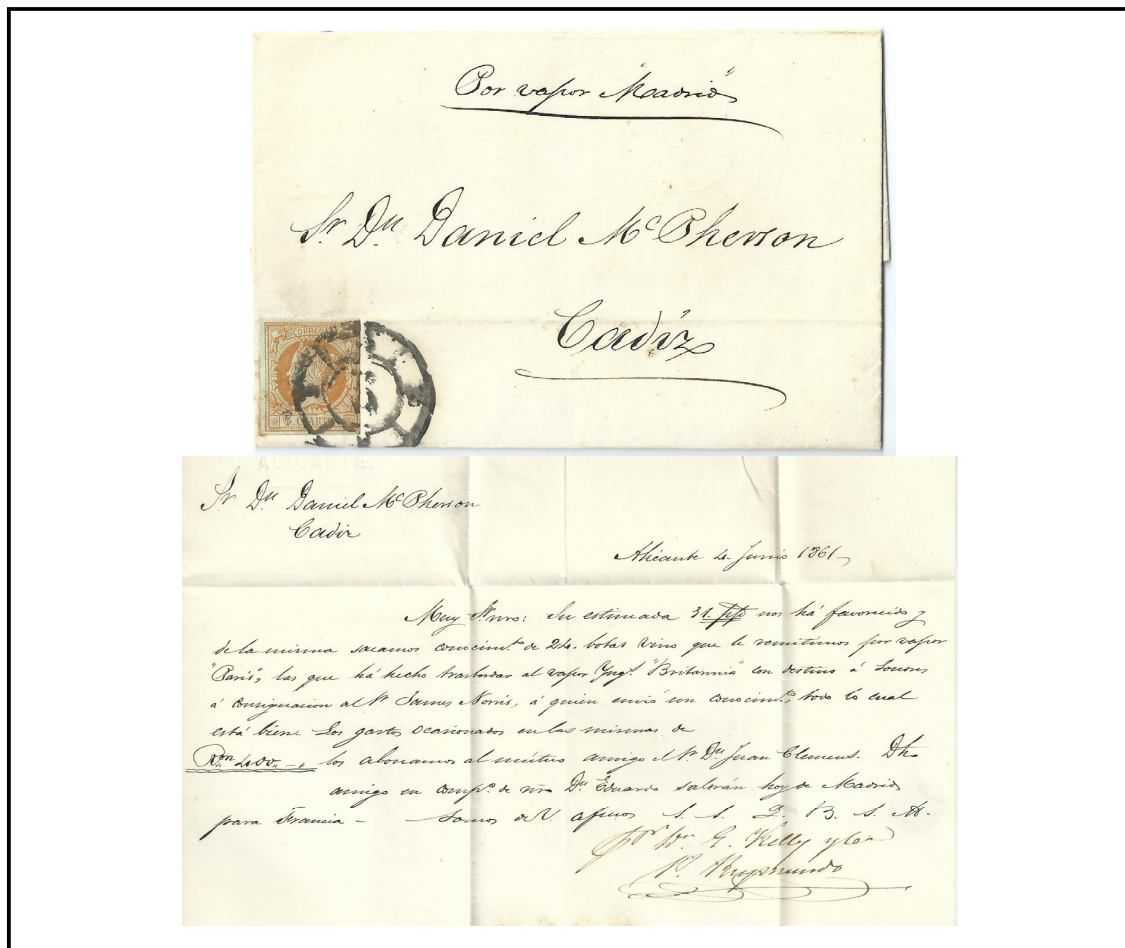 Por vapor "Madrid"
Sr Dn Daniel McPherson
Cadiz
CORREOS
4 CUARTOS
ALICANTE.
Sr Dn Daniel McPherson
Cadiz
Alicante 4 Junio 1861
Muy Sr nro: Su estimada 31 ppdo nos há favorecido y
de la misma sacamos conocimto de 2 botas vino que le remitimos por vapor
"Paris", las que há hecho trasbordar al vapor Yngs "Britannia" con destino á Londres
á consignacion al Sr James Norris, á quien envió un conocimto, todo lo cual
está bien. Los gastos ocasionados en las mismas de
Rvn 400 —, los abonamos al mútuo amigo el Sr Dn Juan Clemens. Dho
amigo en compa de nro Dn Eduardo saldrán hoy de Madrid
para Francia — Somos de V. afmos S. S. Q. B. S. M.
por Wm E. Kelly y Ca